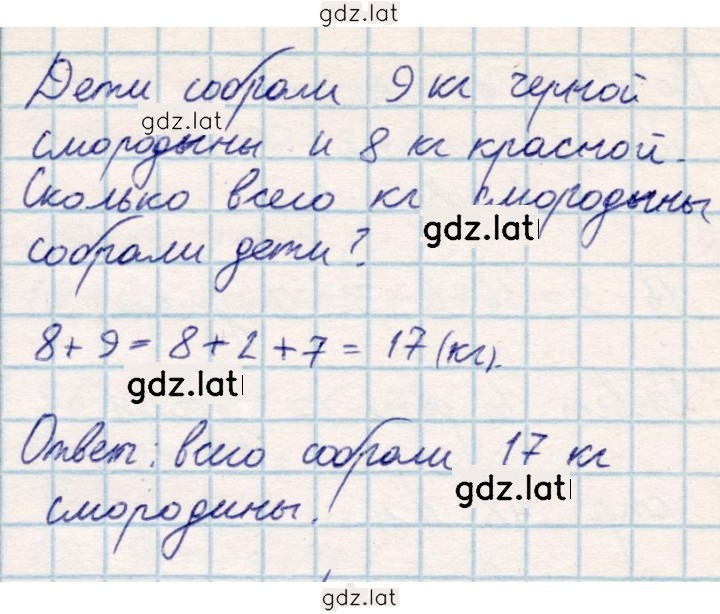 gdz.lat
Дети собрали 9 кг черной
gdz.lat
смородыны и 8 кг красной.
Сколько всего кг смородыны
gdz.lat
собрали дети?
8 + 9 = 8 + 2 + 7 = 17 (кг).
gdz.lat
Ответ: всего собрали 17 кг
gdz.lat
смородины.
gdz.lat